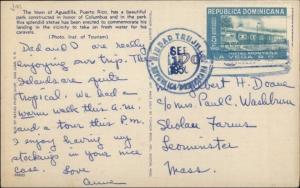 The town of Aguadilla, Puerto Rico, has a beautiful
park constructed in honor of Columbus and in the park
this splendid statue has been erected to commemorate his
landing in the vicinity to take on fresh water for his
caravels.
(Photo. Inst. of Tourism)
Dad and D are really
enjoying our trip. The
Islands are quite
tropical. We had a
warm walk this A.M.
and a tour this P.M.
I enjoy having my
stockings in your nice
case. Love to
Anne
REPUBLICA DOMINICANA
CIUDAD TRUJILLO
SEP
Albert H. Doane
c/o Mrs Paul C. Washburn
Farms
Leominster
Mass.